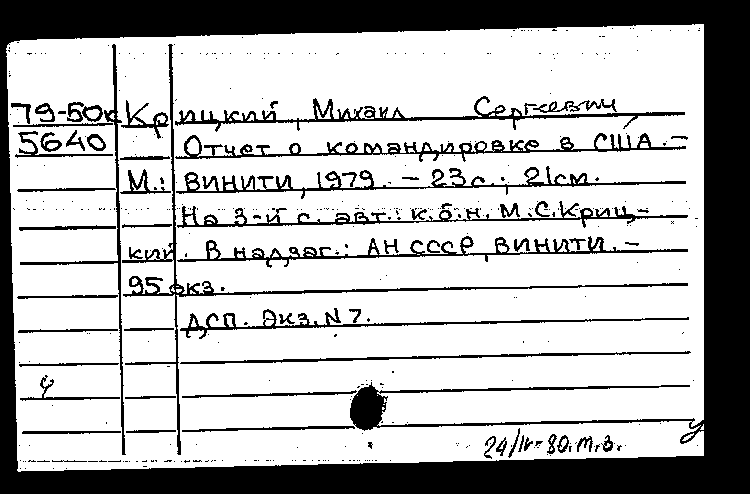 79-50к Крицкий, Михаил Сергеевич
5640 Отчет о командировке в США. -
М.: ВИНИТИ, 1979. - 23с.; 21см.
На 3-й с. авт.: к.б.н. М.С.Криц-
кий. В надзаг.: АН СССР, ВИНИТИ. -
95 экз.
ДСП. Экз. N 7.
24/IV-80.